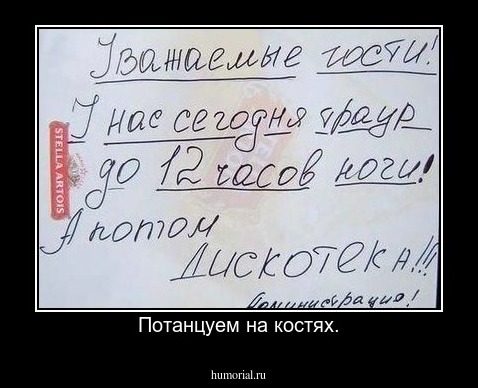 Уважаемые гости!
У нас сегодня траур
до 12 часов ночи!
А потом
Дискотека!!!
Администрация!
STELLA ARTOIS
Потанцуем на костях.
humorial.ru